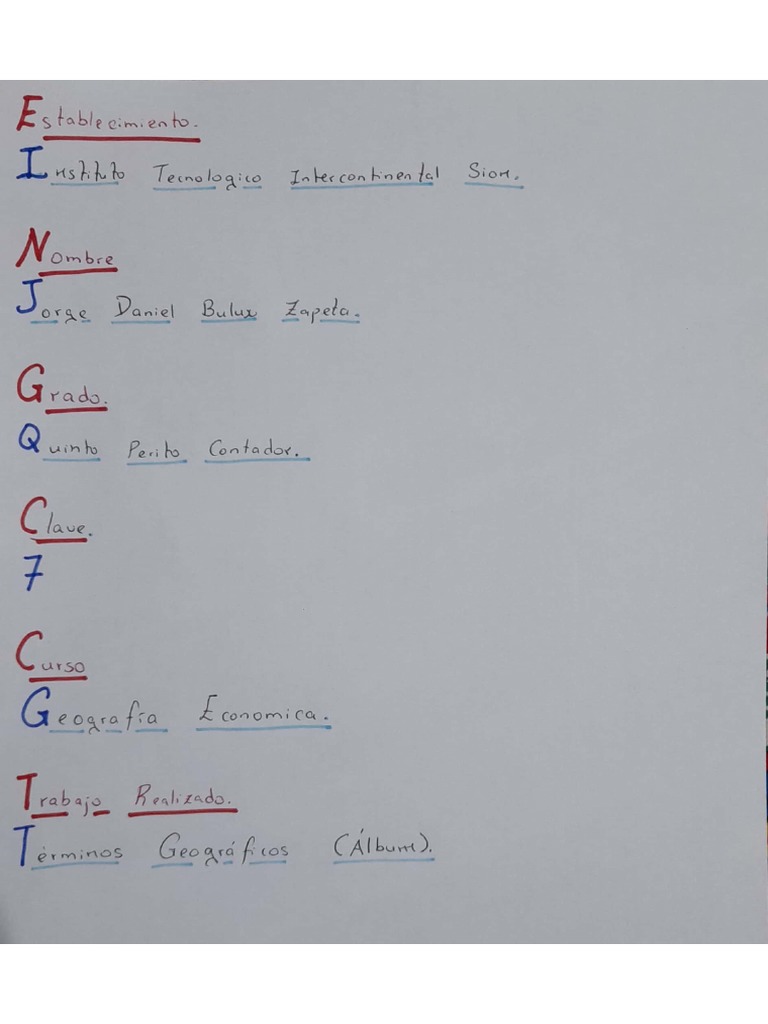 Establecimiento.
Instituto Tecnologico Intercontinental Sion.
Nombre
Jorge Daniel Bulux Zapeta.
Grado.
Quinto Perito Contador.
Clave.
7
Curso
Geografía Economica.
Trabajo Realizado.
Términos Geográficos (Álbum).